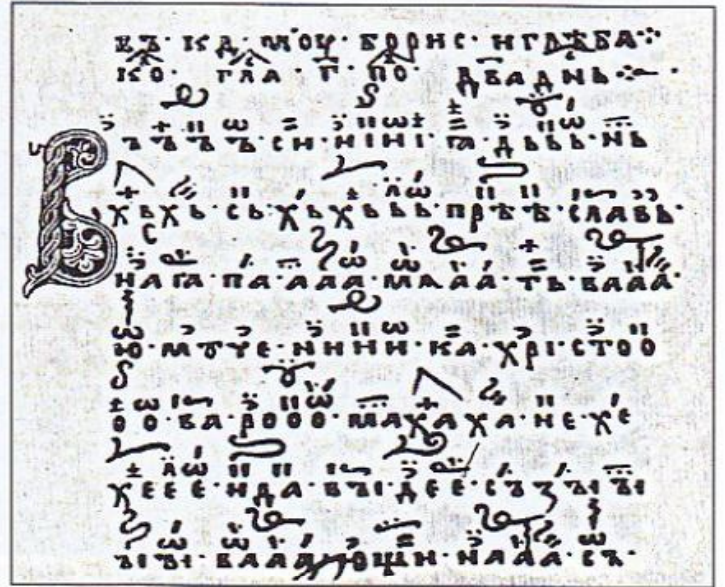 ВЪ · КД · МОУ · БОРИС · И ГЛѢБА ⁘
КО · ГЛА · Г · ПО · ДВА ДНЬ ⁘
В Ъ Ъ Ъ Ъ · СИ · НІНІ · ГА · ДЬЬЬ · НЬ
ХЬХЬ · СЬ · ХЬХЬЬЬ · ПРѢѢ · СЛАВЬ ·
НАГА · ПА · ААА · МААА · ТЬ · ВААА ·
Ю · МѸЧЕ · НИНИ · КА · ХРІ · СТОО
ОО · ВА · РООО · МАХАХА · НЕ · ХЕ
ХЕЕЕ · НДА · ВЪІ · ДЕЕ · СЪЗ ЪІЪІ
ЪІЪІ · ВААА · ЮЩИ · НААА · СЪ ·